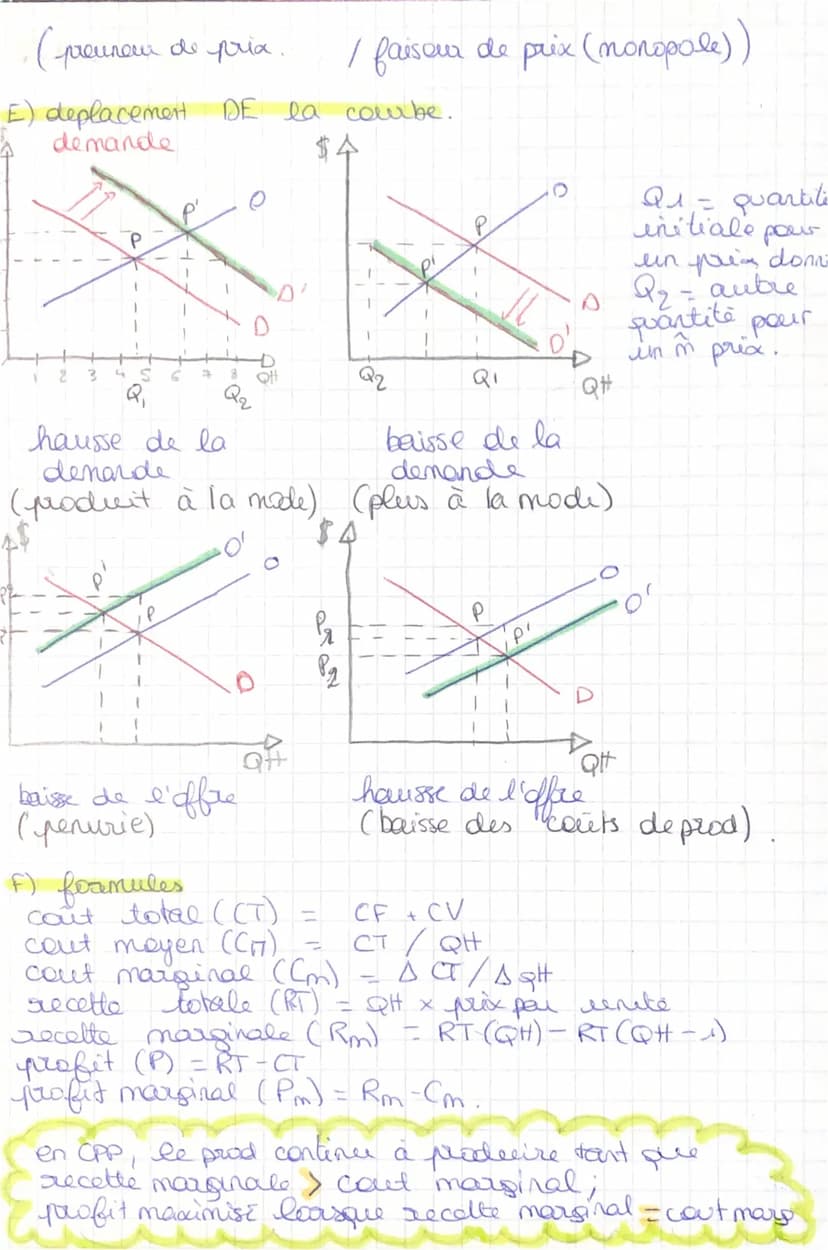 (preneur de prix. / faiseur de prix (monopole))
E) deplacement DE la courbe.
demande
$
O
P'
P
D'
D
1 2 3 4 5 6 7 8 QH
Q1 Q2
$
O
P
P'
D
D'
Q2 Q1 QH
Q1 = quantité
initiale pour
un prix donn
Q2 = autre
quantité pour
un m̂ prix.
hausse de la
demande
(produit à la mode)
baisse de la
demande
(plus à la mode)
$
O'
O
P'
P
D
QH
$
O
O'
P
P'
P1
P2
D
QH
baisse de l'offre
(penurie)
hausse de l'offre
(baisse des coûts de prod).
F) formules
coût total (CT) = CF + CV
cout moyen (CM) = CT / QH
cout marginal (Cm) = Δ CT / Δ QH
recette totale (RT) = QH × prix par unité
recette marginale (Rm) = RT (QH) - RT (QH - 1)
profit (P) = RT - CT
profit marginal (Pm) = Rm - Cm.
en CPP, le prod continue à produire tant que
recette marginale > cout marginal;
profit maximisé lorsque recette marginal = cout marg